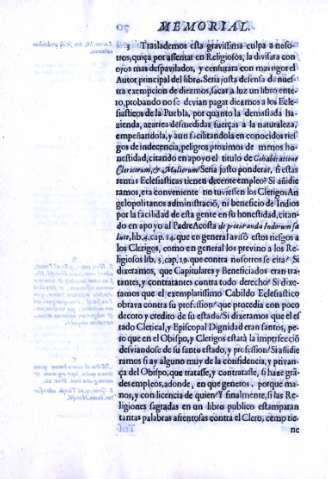 MEMORIAL.
3 Traslademos esta gravissima culpa a noso-
tros, quiça por assentar en Religiosos, la divisara con
ojos mas despavilados, y censurara con mas rigor el
Autor principal del libro. Seria justa defensa de nues-
tra exempcion de diezmos, sacar a luz un libro ente-
ro, probando no se devian pagar diezmos a los Ecle-
siasticos de la Puebla, por quanto la demasiada ha-
zienda, azarîes
empeñandola, y aun facilitandola en conocidos ries-
gos de indecencia, peligros proximos de menos ho-
nestidad, citando en apoyo el titulo de Cohabitatione
Clericorum, & Mulierum? Seria justo ponderar, si estas
rentas Eclesiasticas tienen decente empleo? Si añadie
ramos, era conveniente no tuviessen los Clerigos An
gelopolitanos administració, ni beneficio de Indios
por la facilidad de esta gente en su honestidad, citan-
do en apoyo al Padre Acosta de procuranda Indorum sa
lute, lib. 4. cap. 14. que en general avisó estos riesgos a
los Clerigos, como en general los previno a los Re-
ligiosos lib. 5, cap. 19. que contra nosotros se cita? Si
dixeramos, que Capitulares y Beneficiados eran tra-
tantes, y contratantes contra todo derecho? Si dixe-
ramos que el exemplarissimo Cabildo Eclesiastico
obrava contra su profession? que procedia con poco
decoro y credito de su estado? Si dixeramos que el es
tado Clerical, y Episcopal Dignidad eran santos, pe-
ro que en el Obispo, y Clerigos estará la imperfecció
desviandose de su santo estado, y profession? Si añidie
ramos si ay alguno muy de la confidencia, y privan-
ça del Obispo, que tratasse, y contratasse, si haze grã-
des empleos, adonde, en que generos, porque ma-
nos, y con licencia de quien? Y finalmente, si las Re-
ligiones sagradas en un libro publico estamparan
tantas palabras afrentosas contra el Clero, como tie-
ne